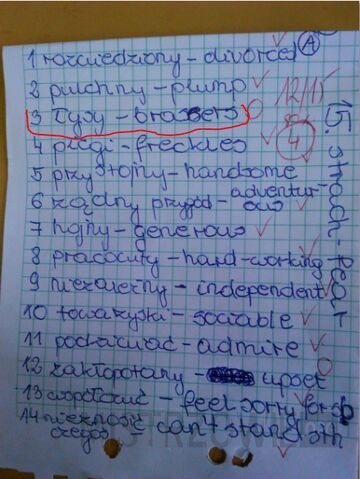 1 rozwiedziony - divorced A
2 pulchny - plump
12/15
3 Łysy - brazzers
4 piegi - freckles
4
5 przystojny - handsome
6 żądny przygód - adventur-
ous
7 hojny - generous
8 pracowity - hard-working
9 niezależny - independent
10 towarzyski - sociable
11 podziwiać - admire
12 zakłopotany - upset
13 współczuć - feel sorry for sb
14 nie znosić - can't stand sth
czegoś
15. strach - fear